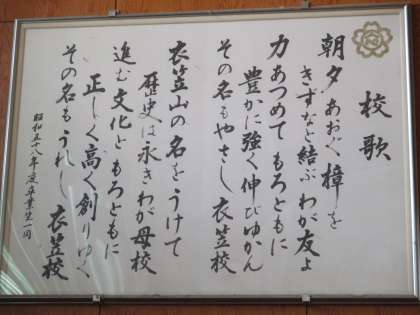 校歌
朝夕あおぐ樟を
きずなと結ぶわが友よ
力あつめてもろともに
豊かに強く伸びゆかん
その名もやさし衣笠校
衣笠山の名をうけて
歴史は永きわが母校
進む文化ともろともに
正しく高く創りゆく
その名もうれし 衣笠校
昭和五十八年度卒業生一同